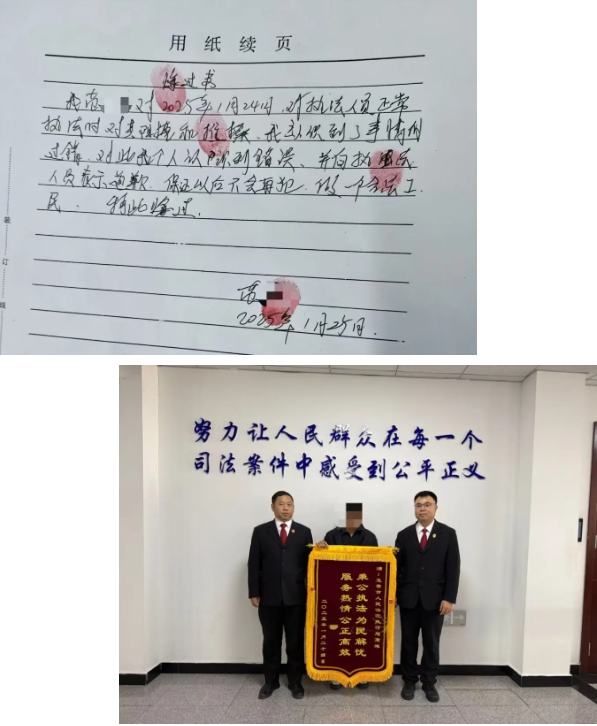 用纸续页
悔过书
我 对2025年1月24日,对执法人员正常
执法时对其阻挠和推搡,我认识到了事情的
过错,对此我个人认识到错误,并向执法
人员表示道歉,保证以后不会再犯,做一个合法公
民.特此悔过.
2025年1月25日.
装
订
线
努力让人民群众在每一个
司法案件中感受到公平正义
市人民法院执行局
秉公执法为民解忧
服务热情公正高效
二〇二五年一月二十四日